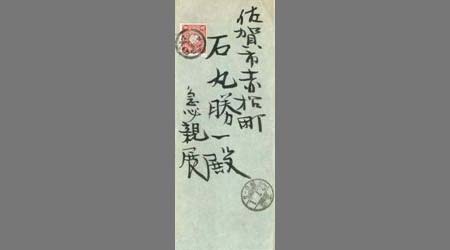 佐賀市赤松町
石丸勝一殿
急必親展